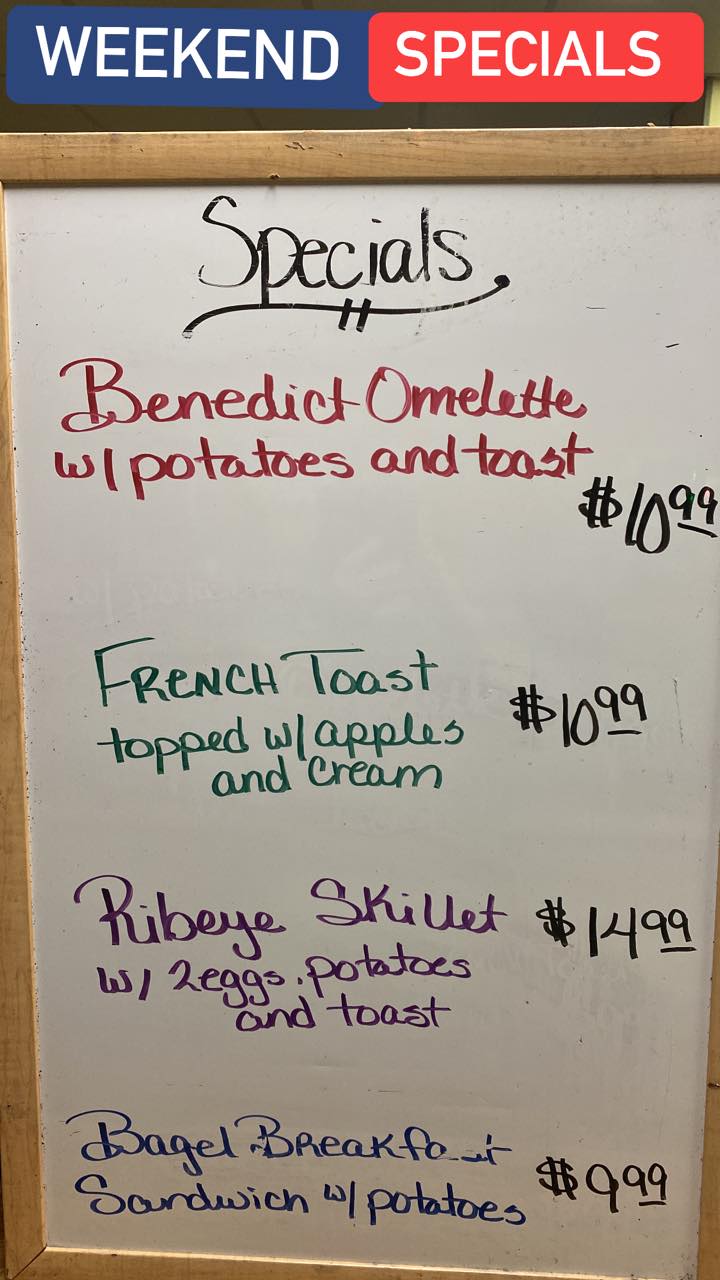 WEEKEND SPECIALS
Specials
Benedict Omelette
w/potatoes and toast
$10.99
FRENCH Toast
topped w/apples
and cream
$10.99
Ribeye Skillet $14.99
w/ 2eggs, potatoes
and toast
Bagel Breakfast
Sandwich w/potatoes
$9.99